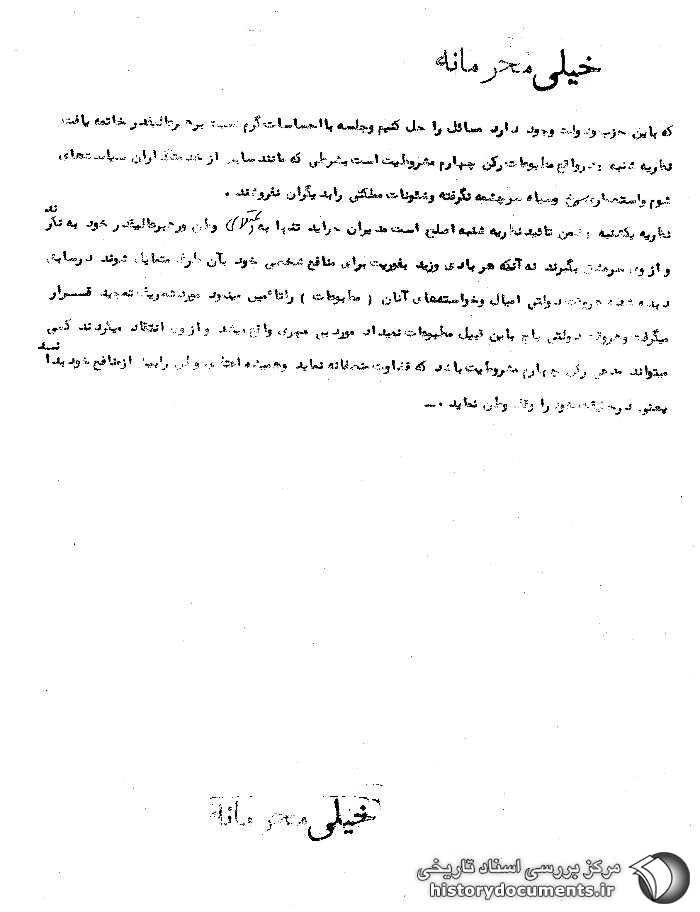 خیلی محرمانه
که باین حزب و دولت وجود دارد مسائل را حل کنیم وجلسه با احساسات گرم نسبت برهبرعالیقدر خاتمه یافت
نظریه شنبه در واقع مطبوعات رکن چهارم مشروطیت است بشرطی که مانند سایر از خدمتگذاران سیاستهای
شوم واستعماری سرخ وسیاه سرچشمه نگرفته وشئونات مملکتی رابدیگران نفروشند .
نظریه یکشنبه ضمن تائید نظریه شنبه اصلح است مدیران جراید تنها به وطن ورهبرعالیقدر خود به فکر
کنند
و از وی سرمشق بگیرند نه آنکه هر بادی وزید بفوریت برای منافع شخصی خود بآن طرف متمایل شوند درسابق
دیده شده هروقت دولتی امیال وخواسته های آنان ( مطبوعات ) راتامین مینمود موردتعریف وتمجید قرار
میگرفت وهروقت دولتی باج باین قبیل مطبوعات نمیداد مورد بی مهری واقع میشد و از وی انتقاد میکردند کسی
میتواند مدعی رکن چهارم مشروطیت باشد که قضاوت منصفانه نماید وهمیشه اعتلای وطن رابیش ازمنافع خود بدا
نسد
یعنی درحقیقت خود را وقف وطن نماید .—
خیلی محرمانه
مرکز بررسی اسناد تاریخی
historydocuments.ir